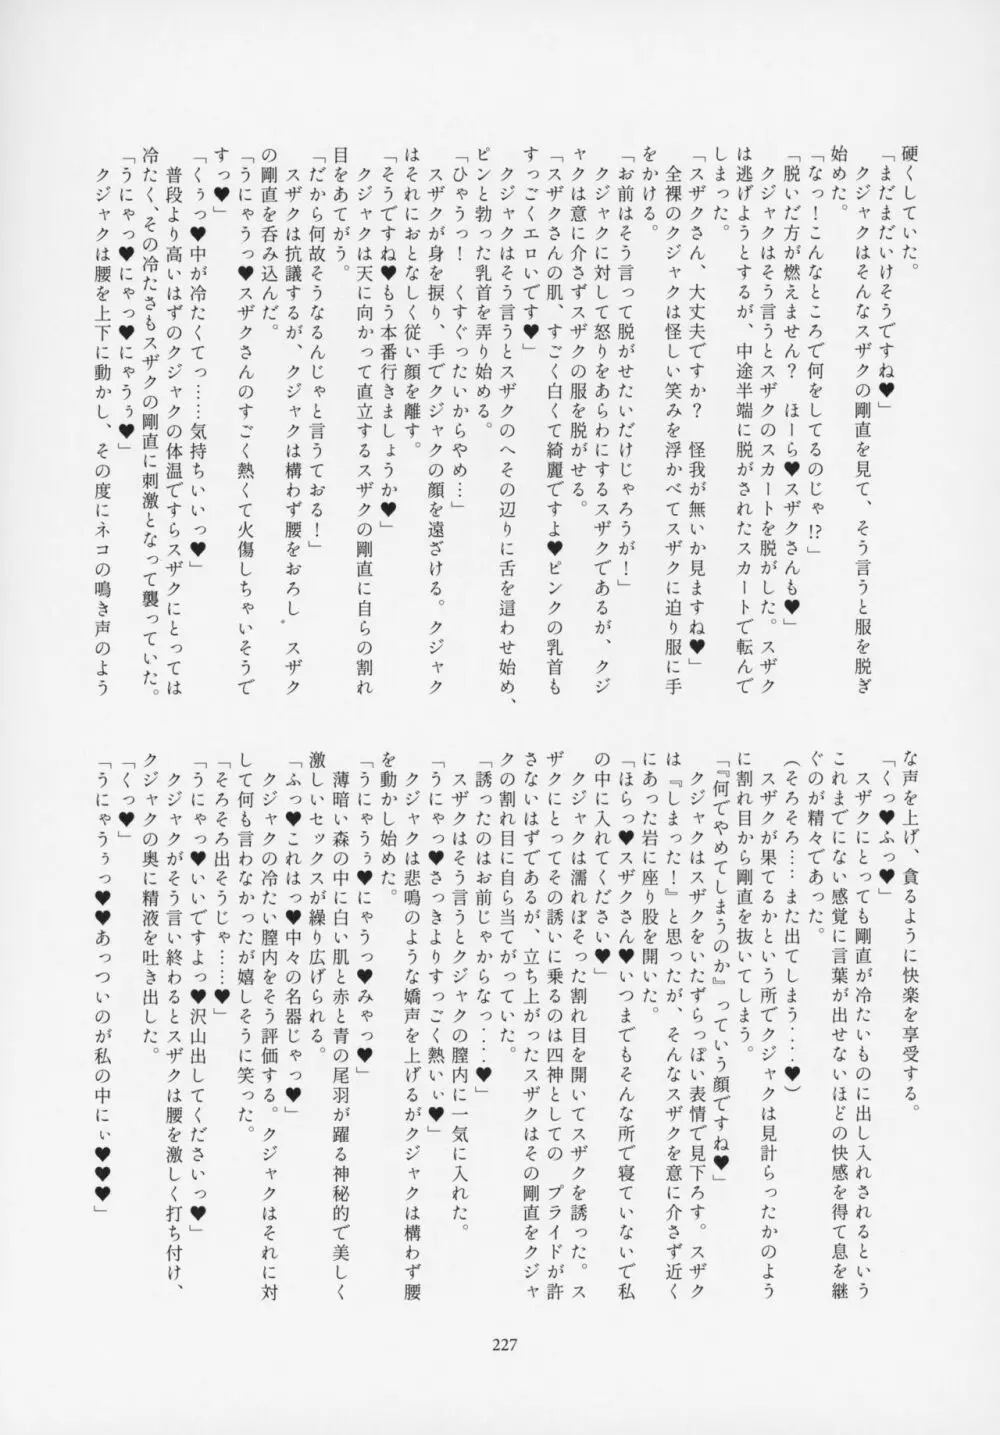 硬くしていた。
「まだまだいけそうですね♥」
クジャクはそんなスザクの剛直を見て、そう言うと服を脱ぎ
始めた。
「なっ！こんなところで何をしてるのじゃ!?」
「脱いだ方が燃えません？　ほーら♥スザクさんも♥」
クジャクはそう言うとスザクのスカートを脱がした。スザク
は逃げようとするが、中途半端に脱がされたスカートで転んで
しまった。
「スザクさん、大丈夫ですか？　怪我が無いか見ますね♥」
全裸のクジャクは怪しい笑みを浮かべてスザクに迫り服に手
をかける。
「お前はそう言って脱がせたいだけじゃろうが！」
クジャクに対して怒りをあらわにするスザクであるが、クジ
ャクは意に介さずスザクの服を脱がせる。
「スザクさんの肌、すごく白くて綺麗ですよ♥ピンクの乳首も
すっごくエロいです♥」
クジャクはそう言うとスザクのへその辺りに舌を這わせ始め、
ピンと勃った乳首を弄り始める。
「ひゃうっ！　くすぐったいからやめ…」
スザクが身を捩り、手でクジャクの顔を遠ざける。クジャク
はそれにおとなしく従い顔を離す。
「そうですね♥もう本番行きましょうか♥」
クジャクは天に向かって直立するスザクの剛直に自らの割れ
目をあてがう。
「だから何故そうなるんじゃと言うておる！」
スザクは抗議するが、クジャクは構わず腰をおろし。スザク
の剛直を呑み込んだ。
「うにゃうっ♥スザクさんのすごく熱くて火傷しちゃいそうで
すっ♥」
「くぅっ♥中が冷たくてっ……気持ちいいっ♥」
普段より高いはずのクジャクの体温ですらスザクにとっては
冷たく、その冷たさもスザクの剛直に刺激となって襲っていた。
「うにゃっ♥にゃっ♥にゃうぅ♥」
クジャクは腰を上下に動かし、その度にネコの鳴き声のよう
な声を上げ、貪るように快楽を享受する。
「くっ♥ふっ♥」
スザクにとっても剛直が冷たいものに出し入れされるという
これまでにない感覚に言葉が出せないほどの快感を得て息を継
ぐのが精々であった。
（そろそろ…．また出てしまう．．．．♥）
スザクが果てるかという所でクジャクは見計らったかのよう
に割れ目から剛直を抜いてしまう。
「『何でやめてしまうのか』っていう顔ですね♥」
クジャクはスザクをいたずらっぽい表情で見下ろす。スザク
は『しまった！』と思ったが、そんなスザクを意に介さず近く
にあった岩に座り股を開いた。
「ほらっ♥スザクさん♥いつまでもそんな所で寝ていないで私
の中に入れてください♥」
クジャクは濡れぼそった割れ目を開いてスザクを誘った。ス
ザクにとってその誘いに乗るのは四神としての　プライドが許
さないはずであるが、立ち上がったスザクはその剛直をクジャ
クの割れ目に自ら当てがっていた。
「誘ったのはお前じゃからなっ．．．．♥」
スザクはそう言うとクジャクの膣内に一気に入れた。
「うにゃっ♥さっきよりすっごく熱いぃ♥」
クジャクは悲鳴のような嬌声を上げるがクジャクは構わず腰
を動かし始めた。
「うにゃうぅ♥にゃうっ♥みゃっ♥」
薄暗い森の中に白い肌と赤と青の尾羽が躍る神秘的で美しく
激しいセックスが繰り広げられる。
「ふっ♥これはっ♥中々の名器じゃっ♥」
クジャクの冷たい膣内をそう評価する。クジャクはそれに対
して何も言わなかったが嬉しそうに笑った。
「そろそろ出そうじゃ……♥」
「うにゃっ♥いいですよっ♥沢山出してくださいっ♥」
クジャクがそう言い終わるとスザクは腰を激しく打ち付け、
クジャクの奥に精液を吐き出した。
「くっ♥」
「うにゃうぅっ♥♥あっついのが私の中にぃ♥♥♥」
227